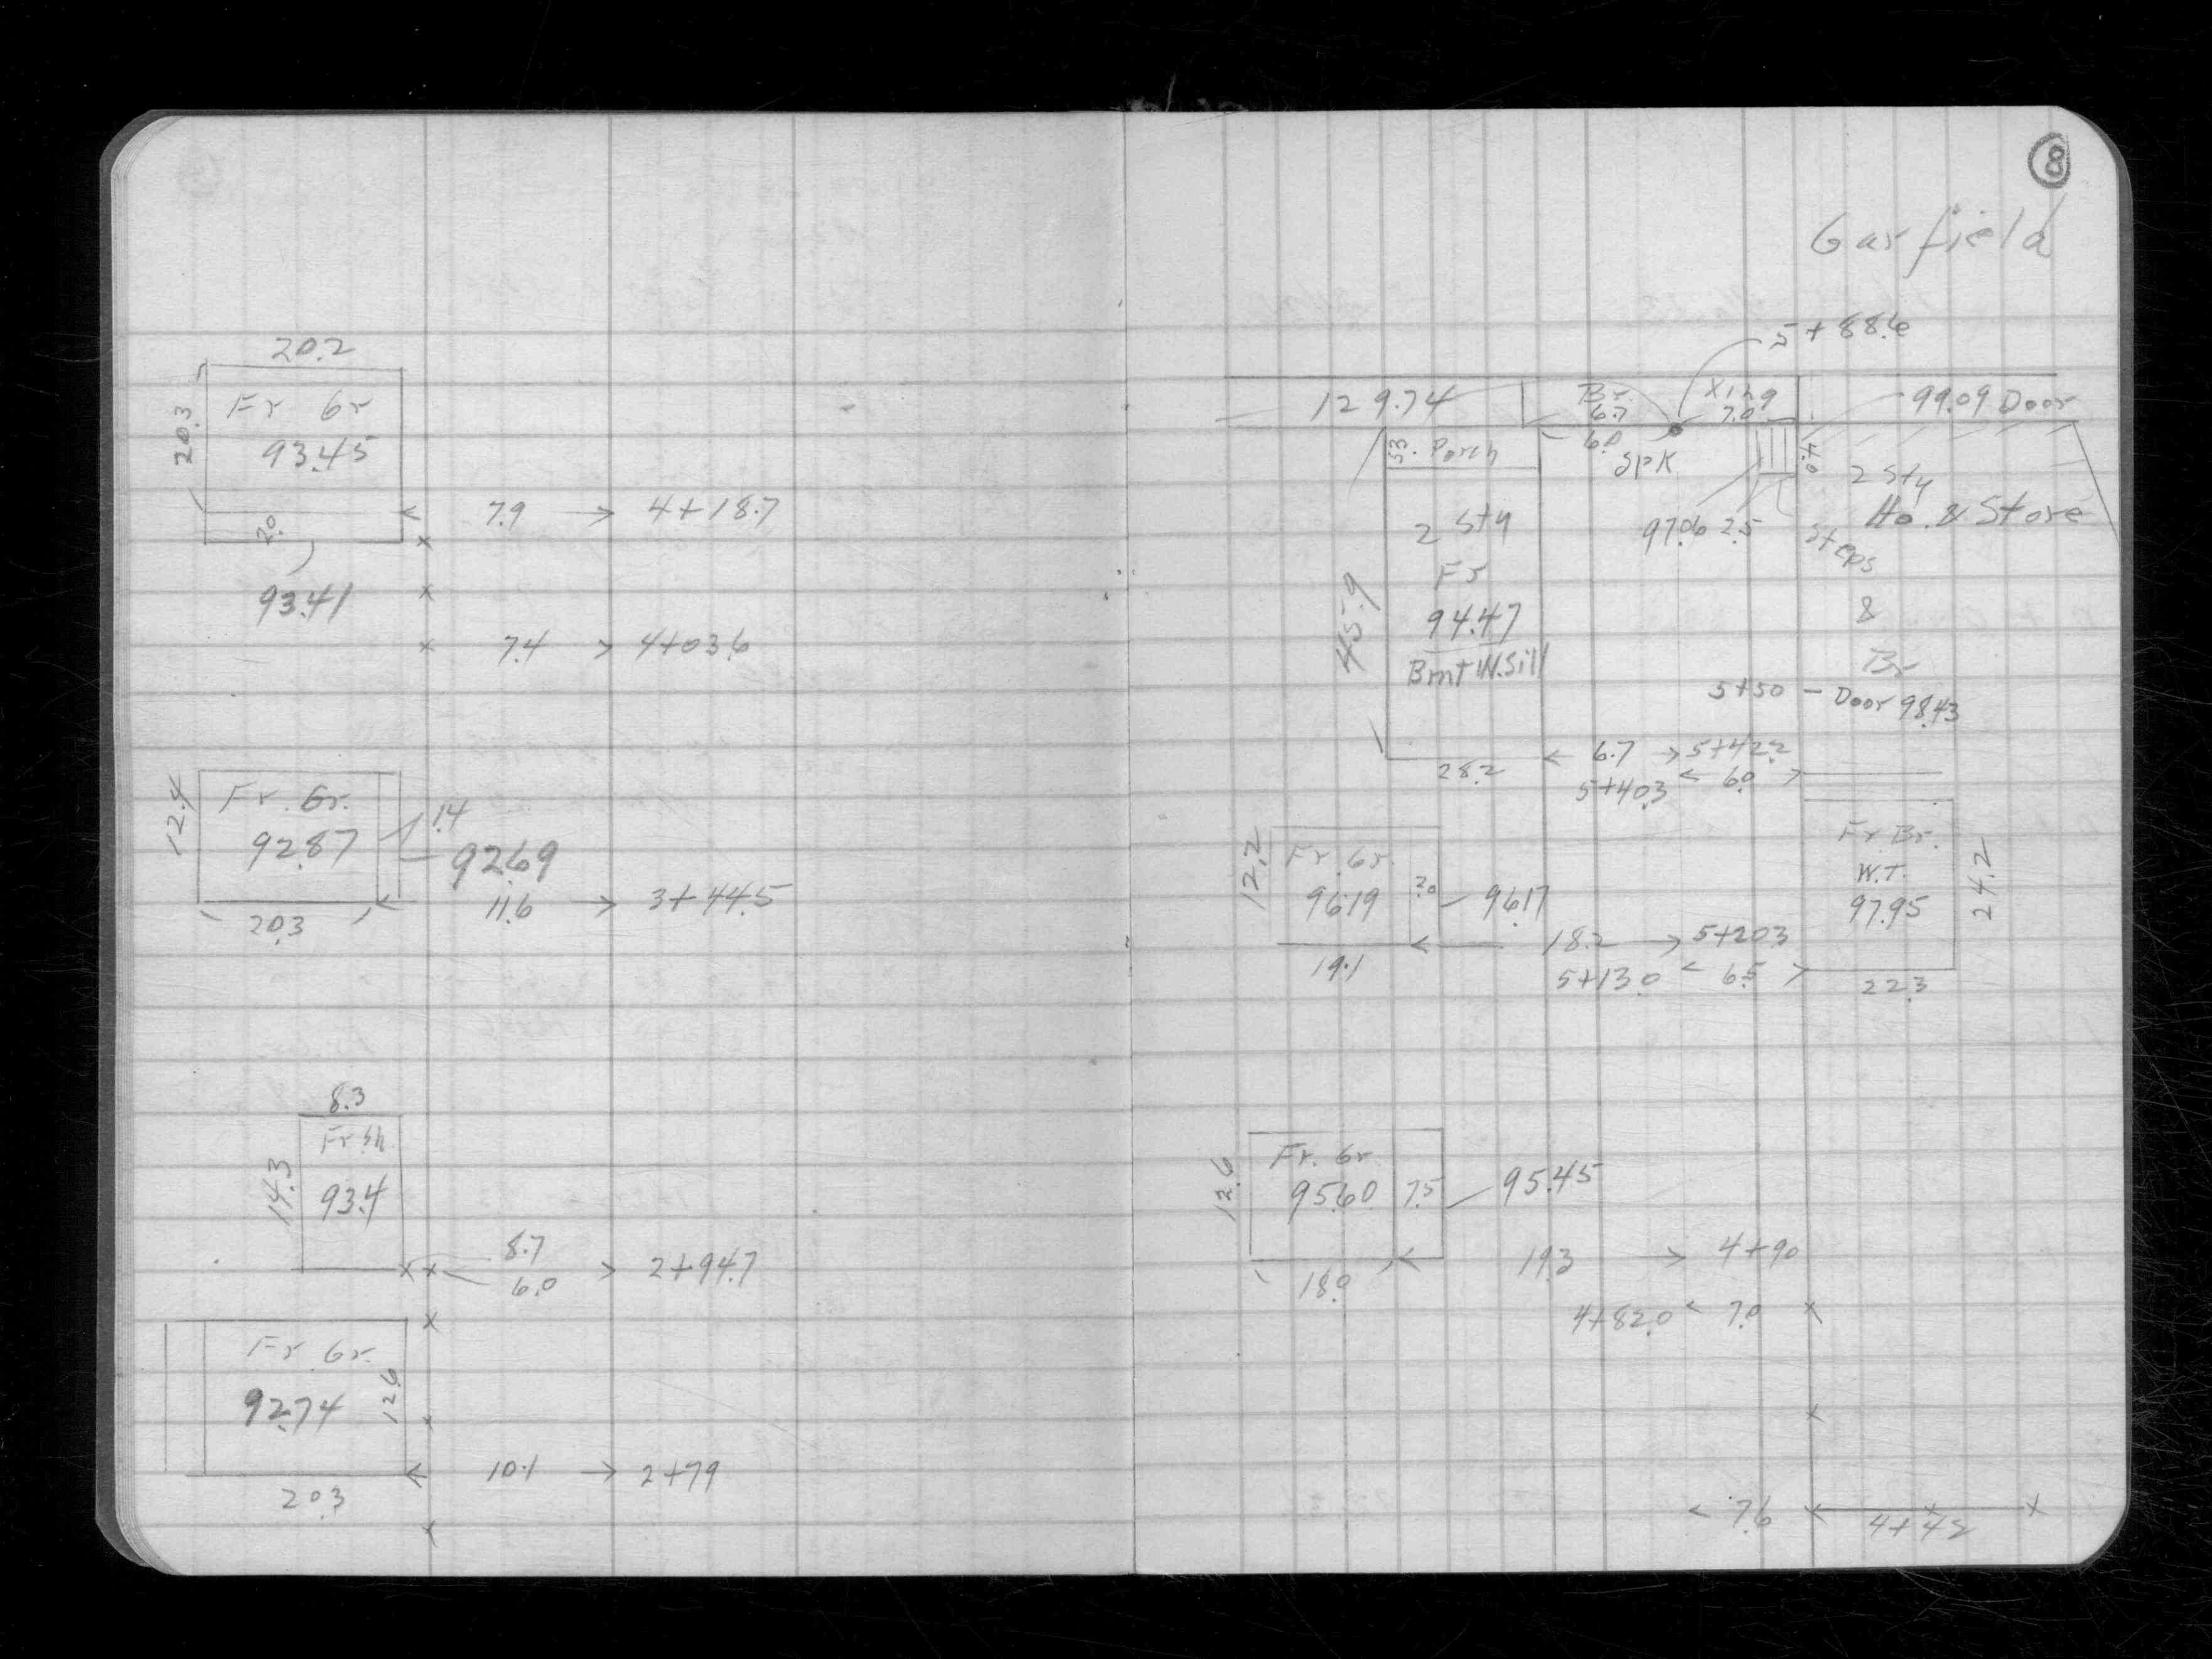 20.2
Fr Gr
20.3
93.45
7.9 → 4+18.7
2.0
93.41
7.4 > 4+03.6
12.4
Fr. Gr.
1.4
92.87
92.69
11.6 → 3+44.5
20.3
8.3
Fr Sh.
14.3
93.4
8.7
6.0 > 2+94.7
Fr Gr.
92.74
12.6
10.1 → 2+79
20.3
8
Garfield
5+88.6
129.74
Br.
6.7
Xing
7.0
99.09 Door
5.3
Porch
6.0
SPK
4.0
2 Sty
Ho. & Store
2 Sty
97.06 2.5
Steps
Fr
45.9
94.47
&
Bmt W. Sill
Br
5+50 - Door 98.43
< 6.7 → 5+42.2
28.2
5+40.3 < 6.0 >
Fr Gr.
12.2
96.19
2.0
96.17
Fr. Br.
W.T.
97.95
24.2
← 18.2 → 5+20.3
19.1
5+13.0 < 6.5 >
22.3
Fr. Gr
12.6
95.60
7.5
95.45
19.3 → 4+90
18.0
4+82.0 < 7.0 x
< 7.6 x
4+42